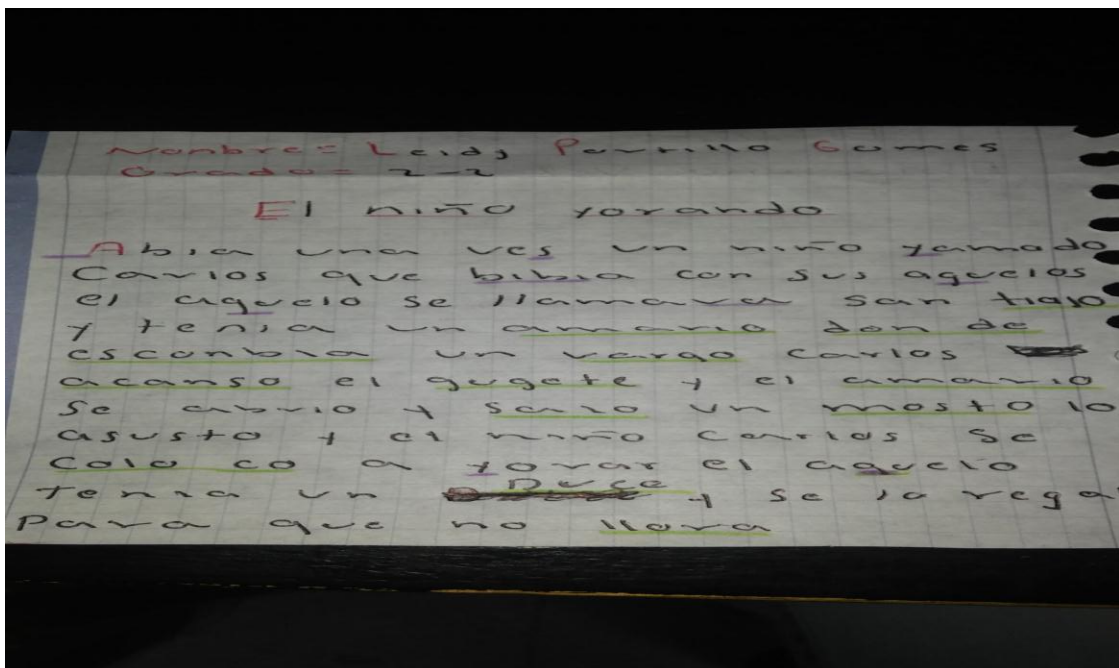 Nonbre= Leidy Parrillo Gomes
Grado= 2-2
El niño yorando
Abia una ves un niño yamado
Carlos que bibia con sus aguelos
el aguelo se llamava san tiajo
y tenia un amario don de
esconbia un vargo carlos
acanso el gugete y el amario
se abrio y salio un mosto lo
asusto y el niño Carlos se
colo co a yorar el aguelo
tenia un Durce y se lo rega
para que no llora